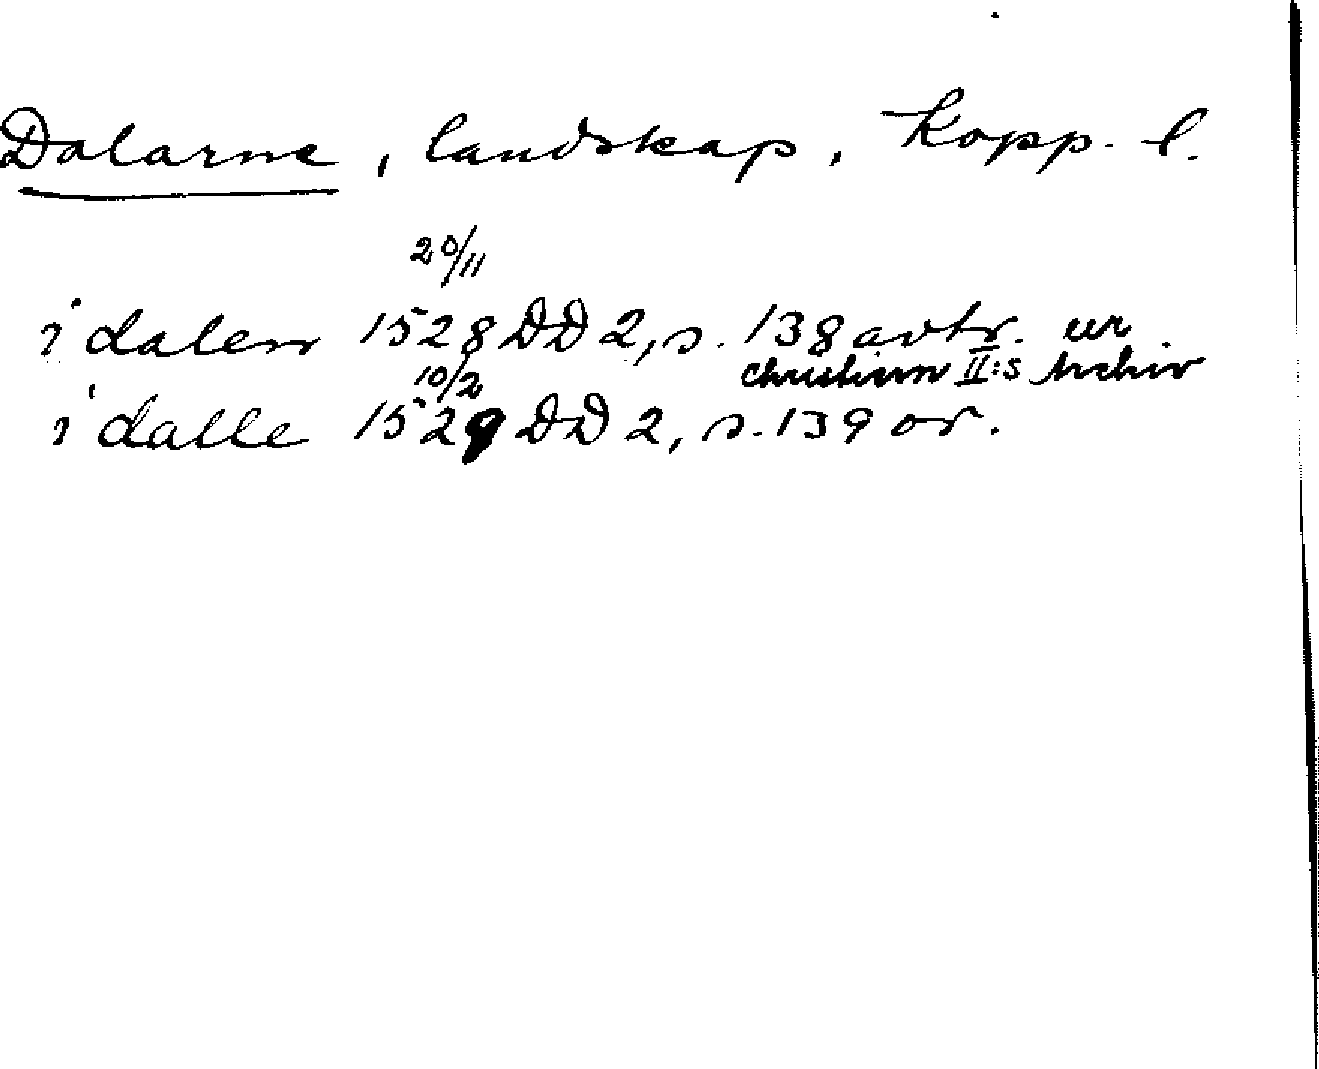 Dalarne, landskap, Kopp. l.
20/11
i dalen 1528 DD 2, s. 138 avtr. ur
Christiern II:s Archiv
10/2
i dalle 1529 DD 2, s. 139 or.